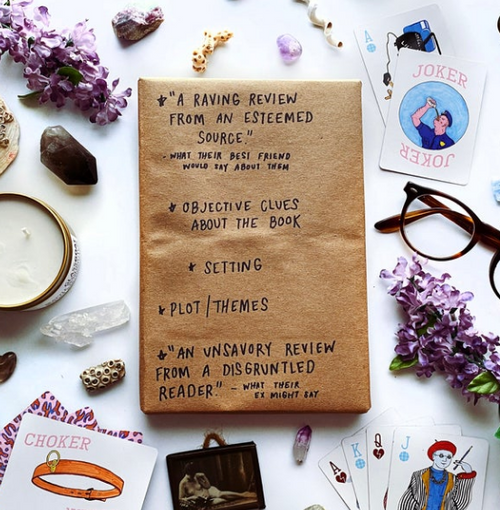 "A RAVING REVIEW
FROM AN ESTEEMED
SOURCE."
- WHAT THEIR BEST FRIEND
WOULD SAY ABOUT THEM
OBJECTIVE CLUES
ABOUT THE BOOK
SETTING
PLOT/THEMES
"AN UNSAVORY REVIEW
FROM A DISGRUNTLED
READER." - WHAT THEIR
EX MIGHT SAY
A
JOKER
JOKER
CHOKER
A
K
Q
J